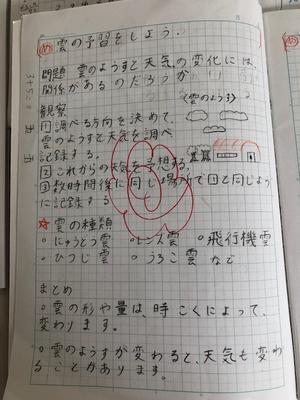 め 雲の予習をしよう。
問題 雲のようすと天気の変化には、
関係があるのだろうか
観察
1調べる方向を決めて、
雲のようすと天気を調べ
記録する。
2これからの天気を予想する。
3数時間後に同じ場所で1と同じよう
に記録する
(雲のようす)
☆雲の種類
○にゅうどう雲 ○レンズ雲 ○飛行機雲
○ひつじ雲 ○うろこ雲 など
まとめ
○雲の形や量は、時こくによって、
変わります。
○雲のようすが変わると、天気も変わ
ることがあります。